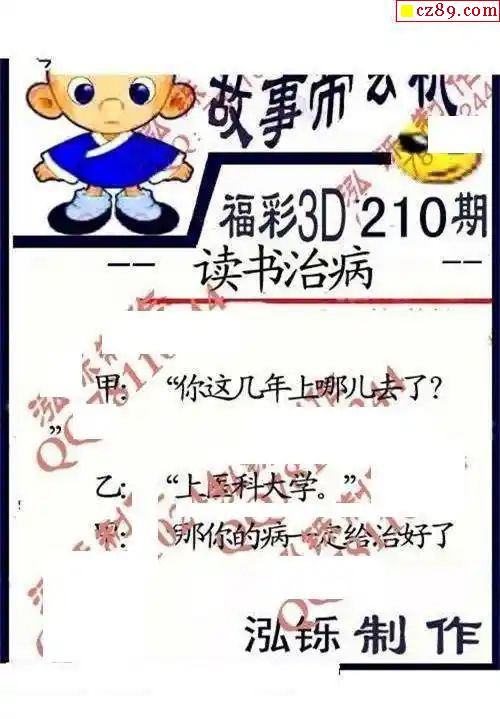 cz89.com
故事师玄机
福彩3D 210期
-- 读书治病 --
甲: “你这几年上哪儿去了?
”
乙: “上医科大学。”
那你的病一定给治好了
泓铄 制作